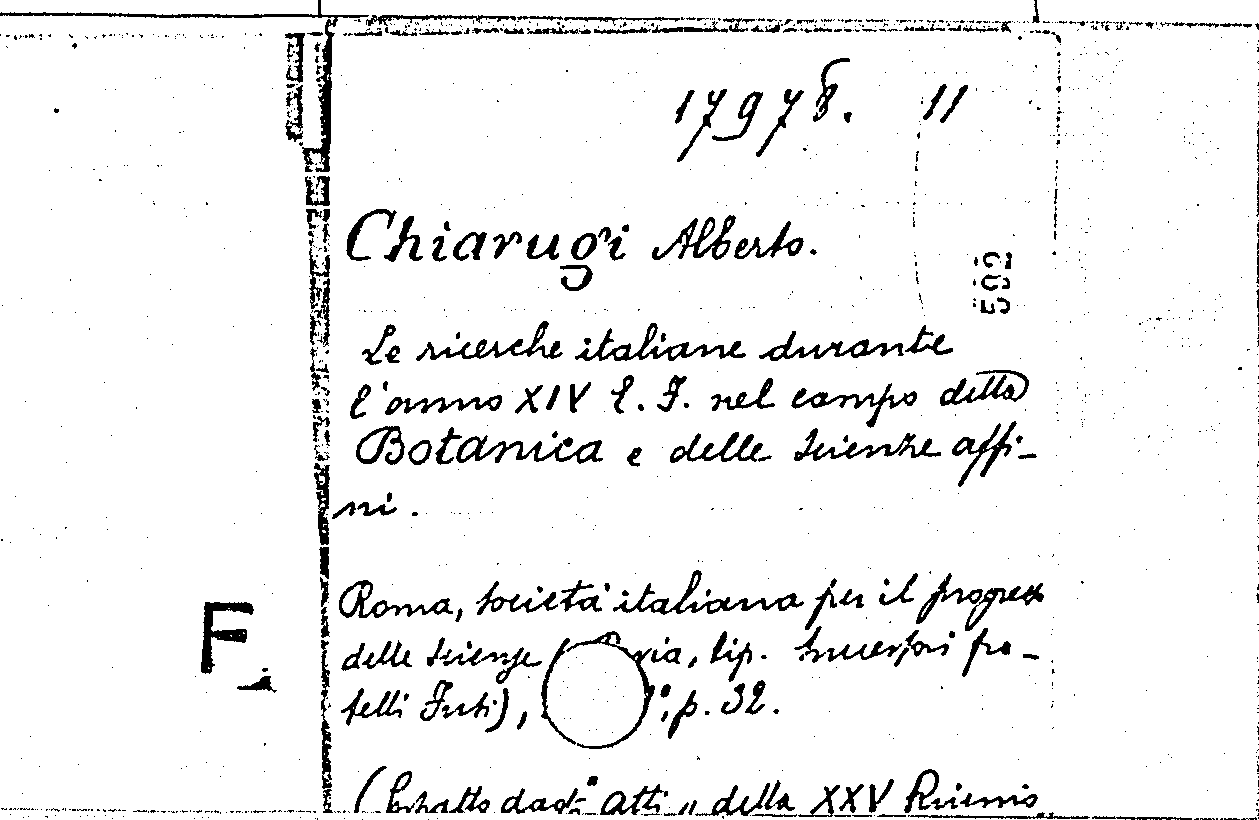 17978. 11
Chiarugi Alberto.
592
Le ricerche italiane durante
l'anno XIV E. F. nel campo della
Botanica e delle scienze affi-
ni.
Roma, società italiana per il progresso
delle scienze tip. Successori fra-
telli Fusi), p. 32.
F
(Estratto dagli "Atti" della XXV Riunio